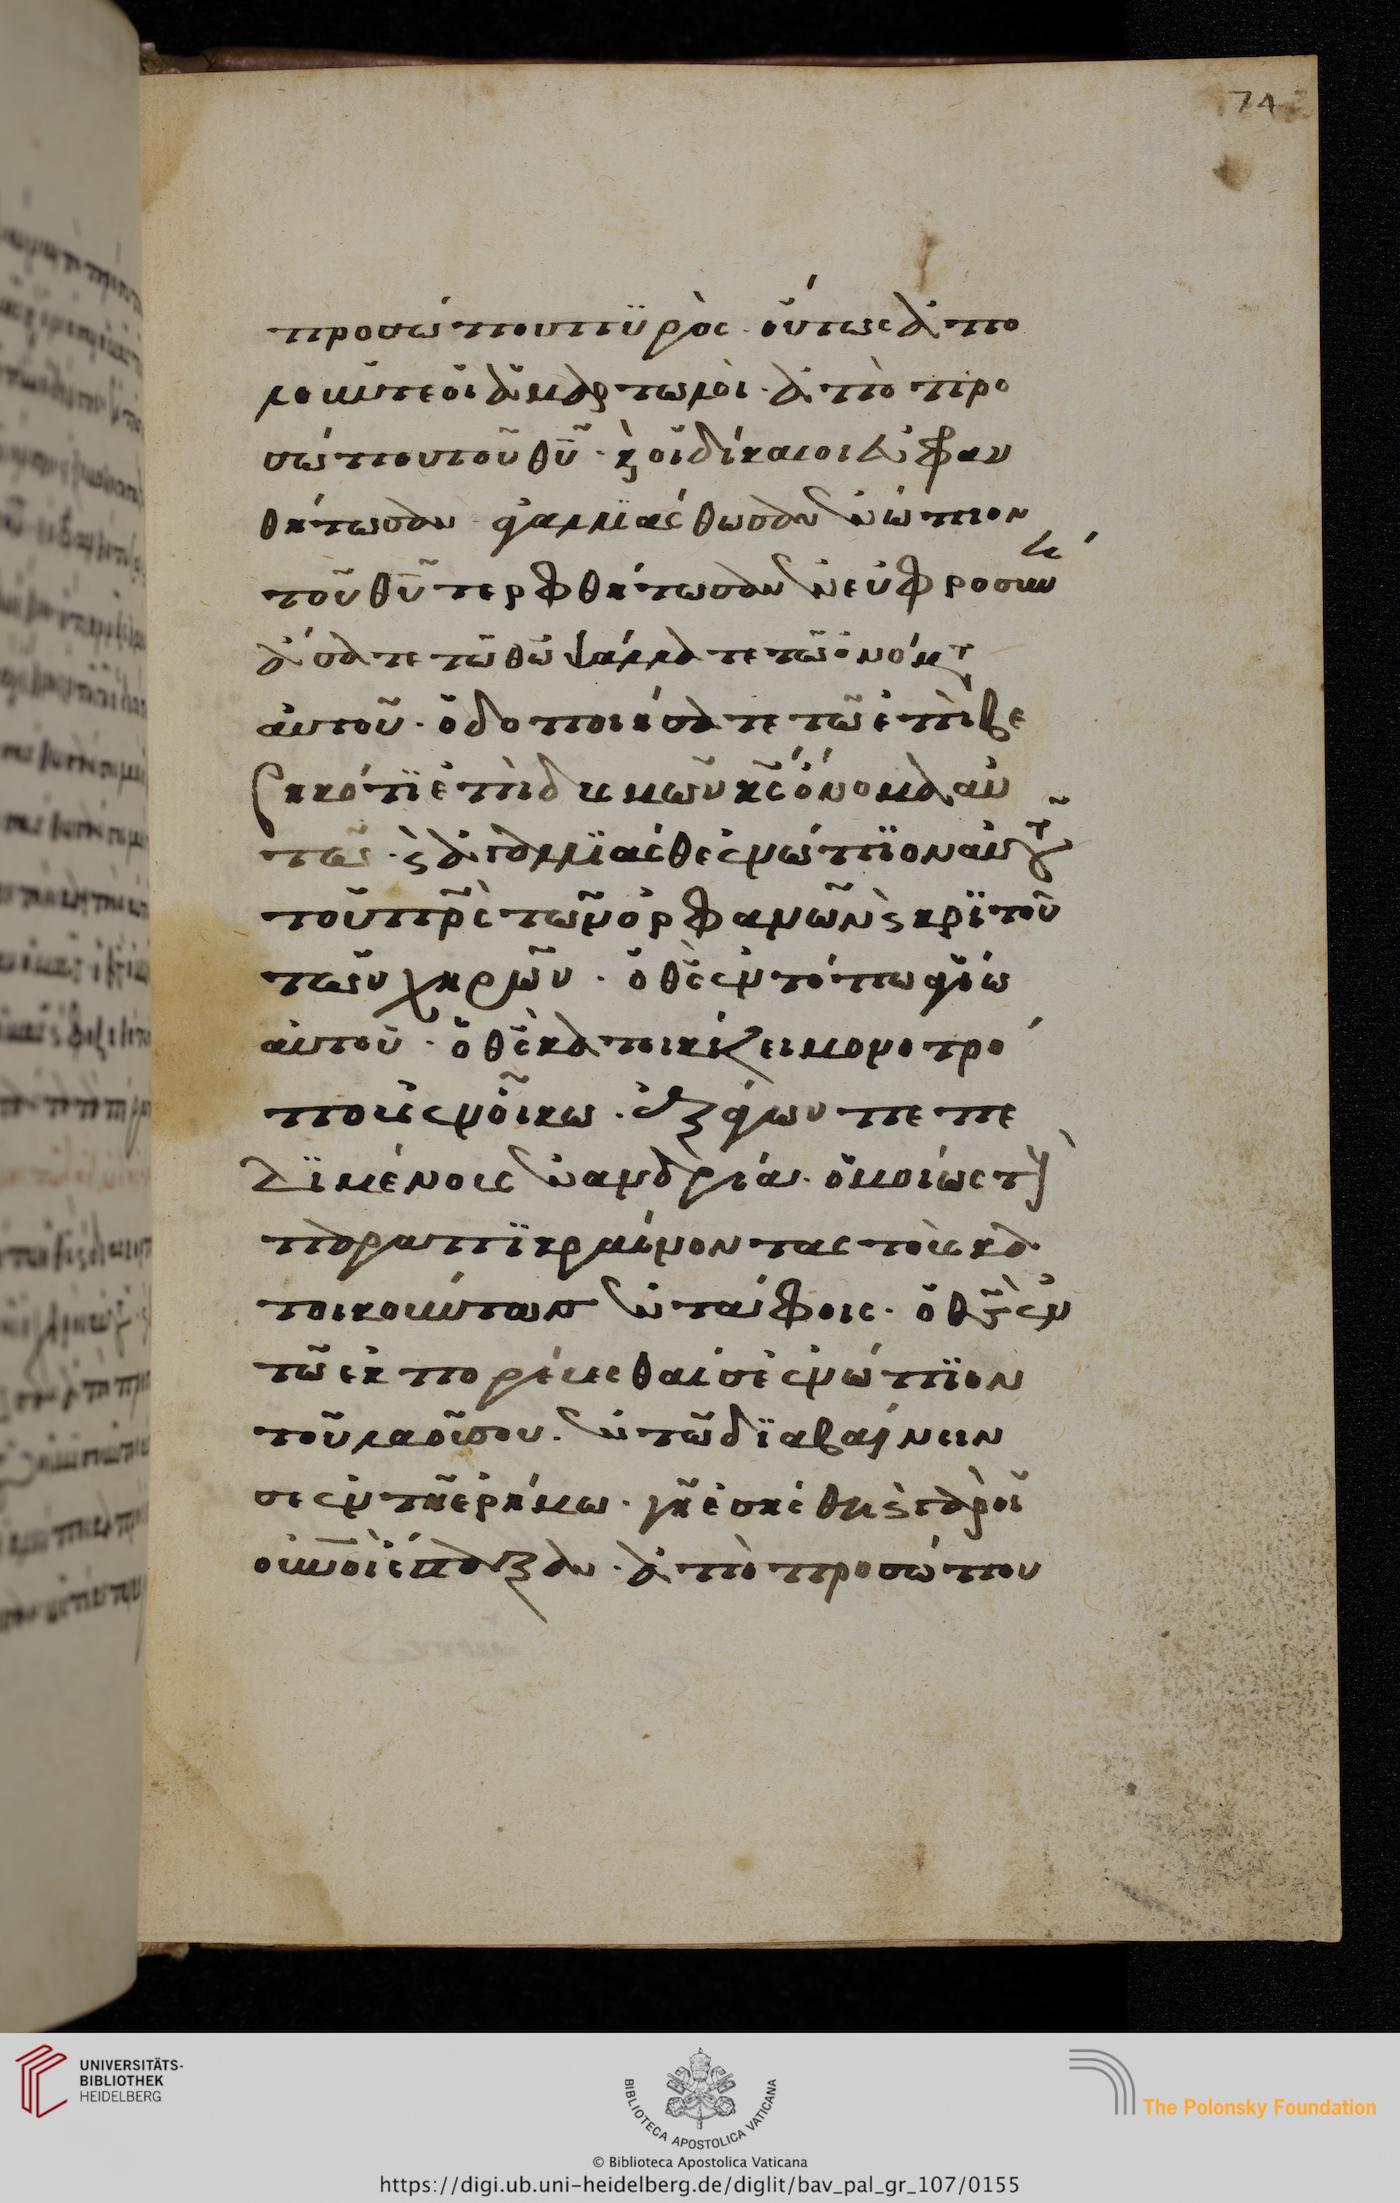 74
προσώπου πυρὸς· οὕτως ἀπο
λοῦντε οἱ ἁμαρτωλοὶ· ἀπὸ προ
σώπου τοῦ θῡ· κ̀ οἱ δίκαιοι εὐφραν
θήτωσαν ἀγαλλϊάσθωσαν ἐνώπιον
τοῦ θῡ τερφθήτωσαν ἐν εὐφροσύνη
ἄσατε τῶ θῶ ψάλλατε τῶ ὀνόματι
αὐτοῦ· ὁδοποιήσατε τῶ ἐπιβε
βηκότϊ ἐπὶ δυσμῶν κς̄ ὄνομα αὐ
τῶ· κ̀ ἀγαλλϊάσθε ἐνώπϊον αὐτοῦ
τοῦ πρ̄ς τῶν ὀρφανῶν κ̀ κρϊτοῦ
τῶν χηρῶν· ὁ θς̄ ἐν τόπω ἁγίω
αὐτοῦ· ὁ θς̄ κατοικίζει μονοτρό
πους ἐν οἴκω· ἐξάγων πεπε
δϊμένους ἐν ἀνδρία· ὁμοίως τοὺς
παραπϊκραίνοντας τοὺς κα
τοικοῦντας ἐν τάφοις· ὁ θς̄ ἐν
τῶ ἐκπορεύεσθαί σε ἐνώπϊον
τοῦ λαοῦ σου· ἐν τῶ δϊαβαίνειν
σε ἐν τῆ ἐρήμω· γῆ ἐσείσθη κ̀ γὰρ οἱ
οὐνοὶ ἔσταξαν· ἀπὸ προσώπου
UNIVERSITÄTS-
BIBLIOTHEK
HEIDELBERG
BIBLIOTECA APOSTOLICA VATICANA
The Polonsky Foundation
© Biblioteca Apostolica Vaticana
https://digi.ub.uni-heidelberg.de/diglit/bav_pal_gr_107/0155